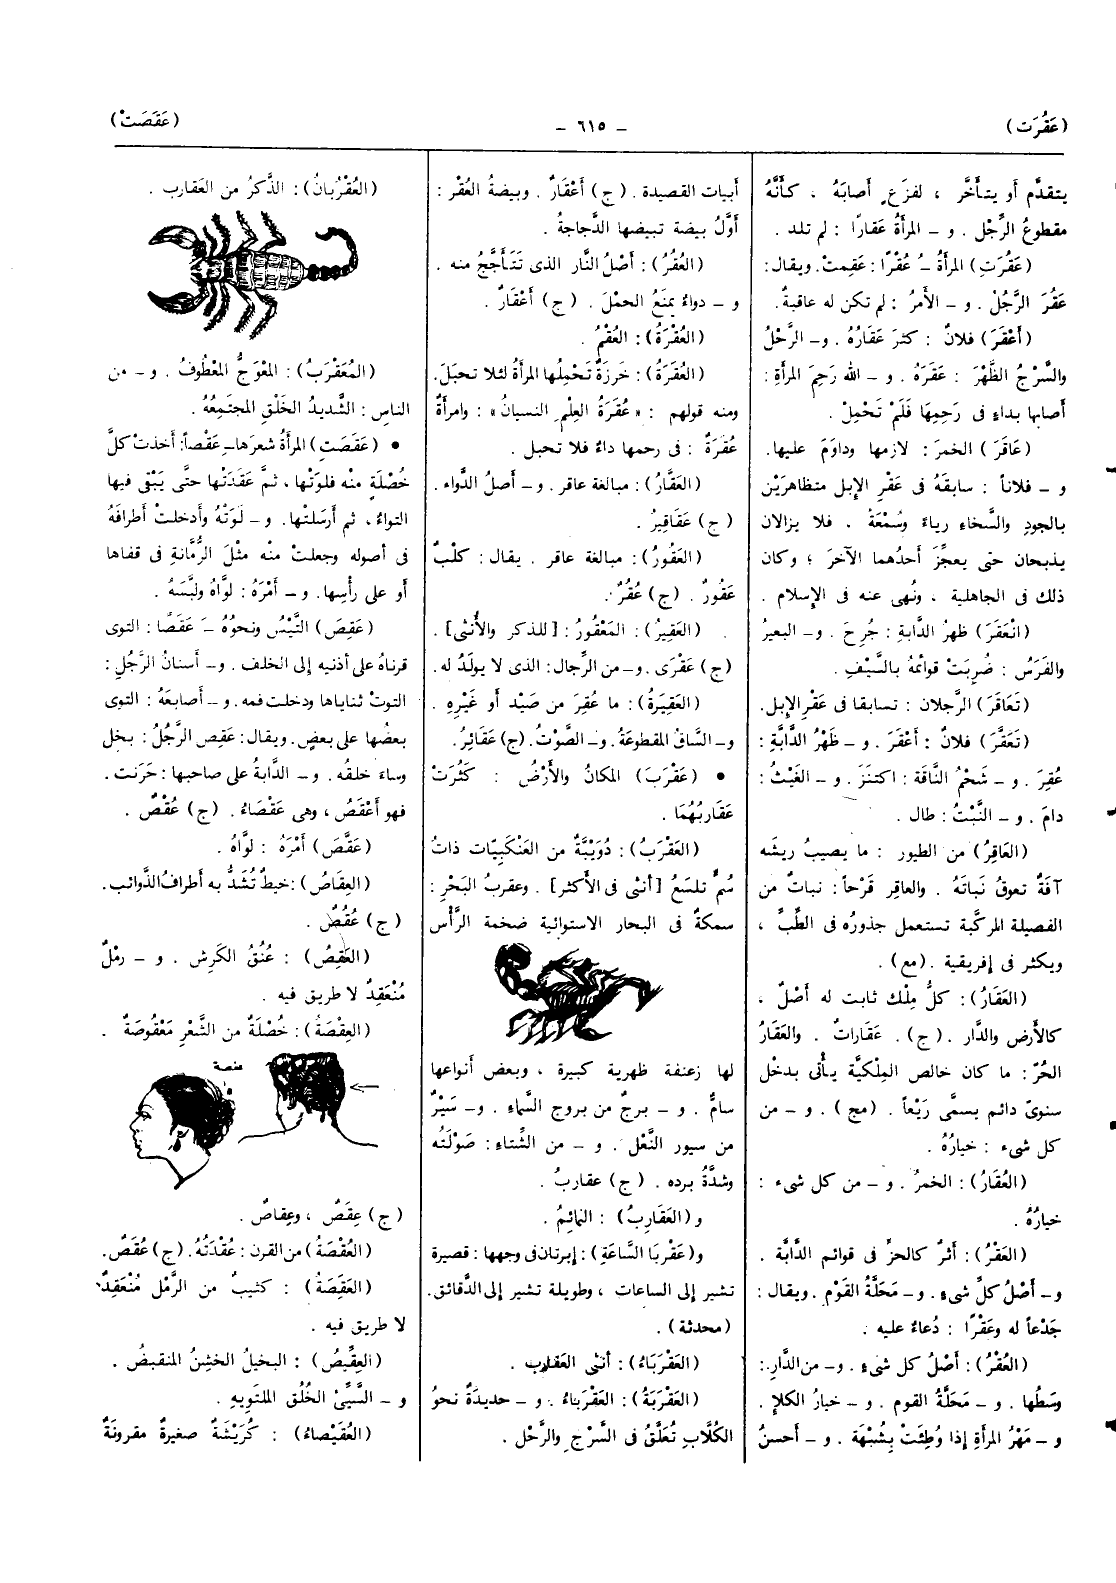 (عَقُرَت)
– ٦١٥ –
(عَقَصَتْ)
يتقدَّم أو يتأخَّر ، لفزَعٍ أصابَهُ ، كأنَّهُ
مقطوعُ الرِّجْل . و – المرأةُ عَقارًا : لم تلد .
(عَقُرَتِ) المرأةُ ـُ عُقْرًا : عَقِمتْ. ويقال :
عَقُرَ الرَّجُلْ . و – الأَمرُ : لم تكن له عاقبةٌ .
(أَعْقَرَ) فلانٌ : كثرَ عَقَارُهُ . و– الرَّحْلُ
والسَّرْجُ الظَّهْرَ : عَقَرَهُ . و – الله رَحِمَ المرأةِ :
أصابها بداءٍ فى رَحِمِها فَلَمْ تَحْمِلْ .
(عَاقَرَ) الخمرَ : لازمها وداوَمَ عليها.
و – فلاناً : سابقَهُ فى عَقْرِ الإبل متظاهرَيْن
بالجودِ والسَّخاءِ رياءً وسُمْعَةً . فلا يزالان
يذبحان حتى يعجِّزَ أحدُهما الآخرَ ؛ وكان
ذلك فى الجاهلية ، ونُهى عنه فى الإسلام .
(انْعَقَرَ) ظهرُ الدَّابةِ : جُرِحَ . و– البعيرُ
والفَرَسُ : ضُرِبَتْ قوائمُهُ بالسَّيْفِ .
(تَعَاقَرَ) الرَّجلان : تسابقا فى عَقْرِ الإبل.
(تَعَقَّرَ) فلانٌ : أَعْقَرَ . و – ظَهْرُ الدَّابَّةِ :
عُقِرَ . و – شَحْمُ النَّاقة : اكتنَزَ . و – الغَيْثُ :
دامَ . و – النَّبْتُ : طال .
(العَاقِرُ) من الطيور : ما يصيبُ ريشَه
آفةٌ تعوقُ نَباتَهُ . والعاقِر قَرْحاً : نباتٌ من
الفصيلة المركَّبة تستعمل جذورُه فى الطِّبِّ ،
ويكثر فى إفريقية . (مع) .
(العَقَارُ) : كلُّ مِلْك ثابت له أَصْلٌ ،
كالأَرض والدَّار . (ج) . عَقَاراتٌ . والعَقَارُ
الحُرّ : ما كان خالص المِلْكيَّة يأتى بدخْل
سنوىّ دائم يسمَّى رَيْعاً . (مج) . و – من
كل شىء : خيارُهُ .
(العُقَارُ) : الخمرُ . و – من كل شىء :
خيارُهُ .
(العَقْرُ) : أَثرٌ كالحزِّ فى قوائم الدَّابَّة .
و – أَصْلُ كلِّ شىء . و – مَحَلَّةُ القَوْمِ . ويقال :
جَدْعاً له وعَقْرًا : دُعاءٌ عليه .
(العُقْرُ) : أَصْلُ كل شىء . و– من الدَّارِ :
وسَطُها . و – مَحَلَّةُ القوم . و – خيارُ الكلإِ .
و – مَهْرُ المرأةِ إذا وُطِئَتْ بِشُبْهَة . و – أحسنُ
أبيات القصيدة . (ج) أَعْقَارٌ . وبيضةُ العُقْر :
أَوَّلُ بيضة تبيضها الدَّجاجةُ .
(العُقُرُ) : أَصْلُ النَّار الذى تَتَأَجَّجُ منه .
و – دواءٌ يمنَعُ الحمْلَ . (ج) أَعْقَارٌ .
(العُقْرَةُ) : العُقْمُ .
(العُقَرَةُ) : خَرزَةٌ تَحْمِلُها المرأةُ لئلا تحبلَ.
ومنه قولهم : « عُقَرَةُ العِلْمِ النسيانُ » : وامرأةٌ
عُقَرَةٌ : فى رحمها داءٌ فلا تحبل .
(العَقَّارُ) : مبالغة عاقر . و– أصلُ الدَّواءِ .
(ج) عَقَاقِيرُ .
(العَقُورُ) : مبالغة عاقر . يقال : كلْبٌ
عَقُورٌ . (ج) عُقُرٌ .
(العَقِيرُ) : المَعْقُورُ : [للذكر والأُنثى] .
(ج) عَقْرَى . و– من الرِّجال : الذى لا يولَدُ له .
(العَقِيرَةُ) : ما عُقِرَ من صَيْد أو غَيْرِهِ .
و– السَّاقُ المقطوعَةُ . و– الصَّوْتُ . (ج) عَقَائِرُ .
● (عَقْرَبَ) المكانُ والأَرْضُ : كَثُرَتْ
عَقَاربُهُمَا .
(العَقْرَبُ) : دُوَيْبَّةٌ من العَنْكَبِيَّات ذاتُ
سُمٍّ تلسَعُ [أنثى فى الأكثر] . وعقربُ البَحْرِ :
سمكةٌ فى البحار الاستوائية ضخمة الرَّأْس
لها زعنفة ظهرية كبيرة ، وبعض أنواعها
سامٌّ . و – برجٌ من بروج السَّماءِ . و– سَيْرٌ
من سيور النَّعْل . و – من الشِّتاء : صَوْلَتُه
وشدَّةُ برده . (ج) عقاربُ .
و (العَقَارِبُ) : النمائمُ .
و(عَقْرَبَا السَّاعَةِ) : إبرتان فى وجهها : قصيرة
تشير إلى الساعات ، وطويلة تشير إلى الدَّقائق.
(محدثة) .
(العَقْرَبَاءُ) : أنثى العقارب .
(العَقْرَبَةُ) : العَقْرَباءُ . و – حديدةٌ نحوُ
الكُلَّابِ تُعَلَّقُ فى السَّرْجِ والرَّحْل .
(العُقْرُبانُ) : الذَّكرُ من العَقارب .
(المُعَقْرَبُ) : المُعْوَجُّ المَعْطُوف . و– من
الناس : الشَّديدُ الخَلْقِ المجتَمِعُهُ .
● (عَقَصَتِ) المرأةُ شعرَها ـِ عَقْصاً : أخذتْ كلَّ
خُصْلَةٍ منه فلوَتْها ، ثمَّ عَقَدَتْها حتَّى يَبْقى فيها
التواءٌ ، ثم أرسَلتْها. و – لَوَتْهُ وأدخلتْ أطرافَهُ
فى أصوله وجعلتْ منه مثْلَ الرُّمَّانةِ فى قفاها
أو على رأْسِها. و – أَمْرَهُ : لوَّاهُ ولبَّسَهُ .
(عَقِصَ) التَّيْسُ ونحوُهُ ـَ عَقَصًا : التوى
قرناهُ على أُذنيه إلى الخلف . و– أسنانُ الرَّجُلِ :
التوتْ ثناياها ودخلت فمه. و – أصابعَهُ : التوى
بعضُها على بعضٍ . ويقال : عَقِصِ الرَّجلُ : بخل
وساءَ خلقُه . و – الدَّابةُ على صاحبها : حَرَنت.
فهو أَعْقَصُ ، وهى عَقْصَاءُ . (ج) عُقْصٌ .
(عَقَّصَ) أَمْرَهُ : لوَّاهُ .
(العِقَاصُ) : خيطٌ تُشَدُّ به أطرافُ الذَّوائب.
(ج) عُقُصٌ .
(العَقِصُ) : عُنُقُ الكَرِشِ . و – رمْلٌ
مُنْعَقِدٌ لا طريق فيه .
(العِقْصَةُ) : خُصْلَةٌ من الشَّعْرِ مَعْقُوصَةٌ .
(ج) عِقَصٌ ، وعِقاصٌ .
(العُقْصَةُ) من القرن : عُقْدَتُهُ . (ج) عُقَصٌ .
(العَقِصَةُ) : كثيبٌ من الرَّمْل مُنْعَقِدٌ
لا طريق فيه .
(العِقِّيصُ) : البخيلُ الخشِنُ المنقبضُ .
و – السَّيِّئُ الخُلُق الملتَوِيهِ .
(العُقَيْصَاءُ) : كُرَيْشَةٌ صغيرةٌ مقرونَةٌ